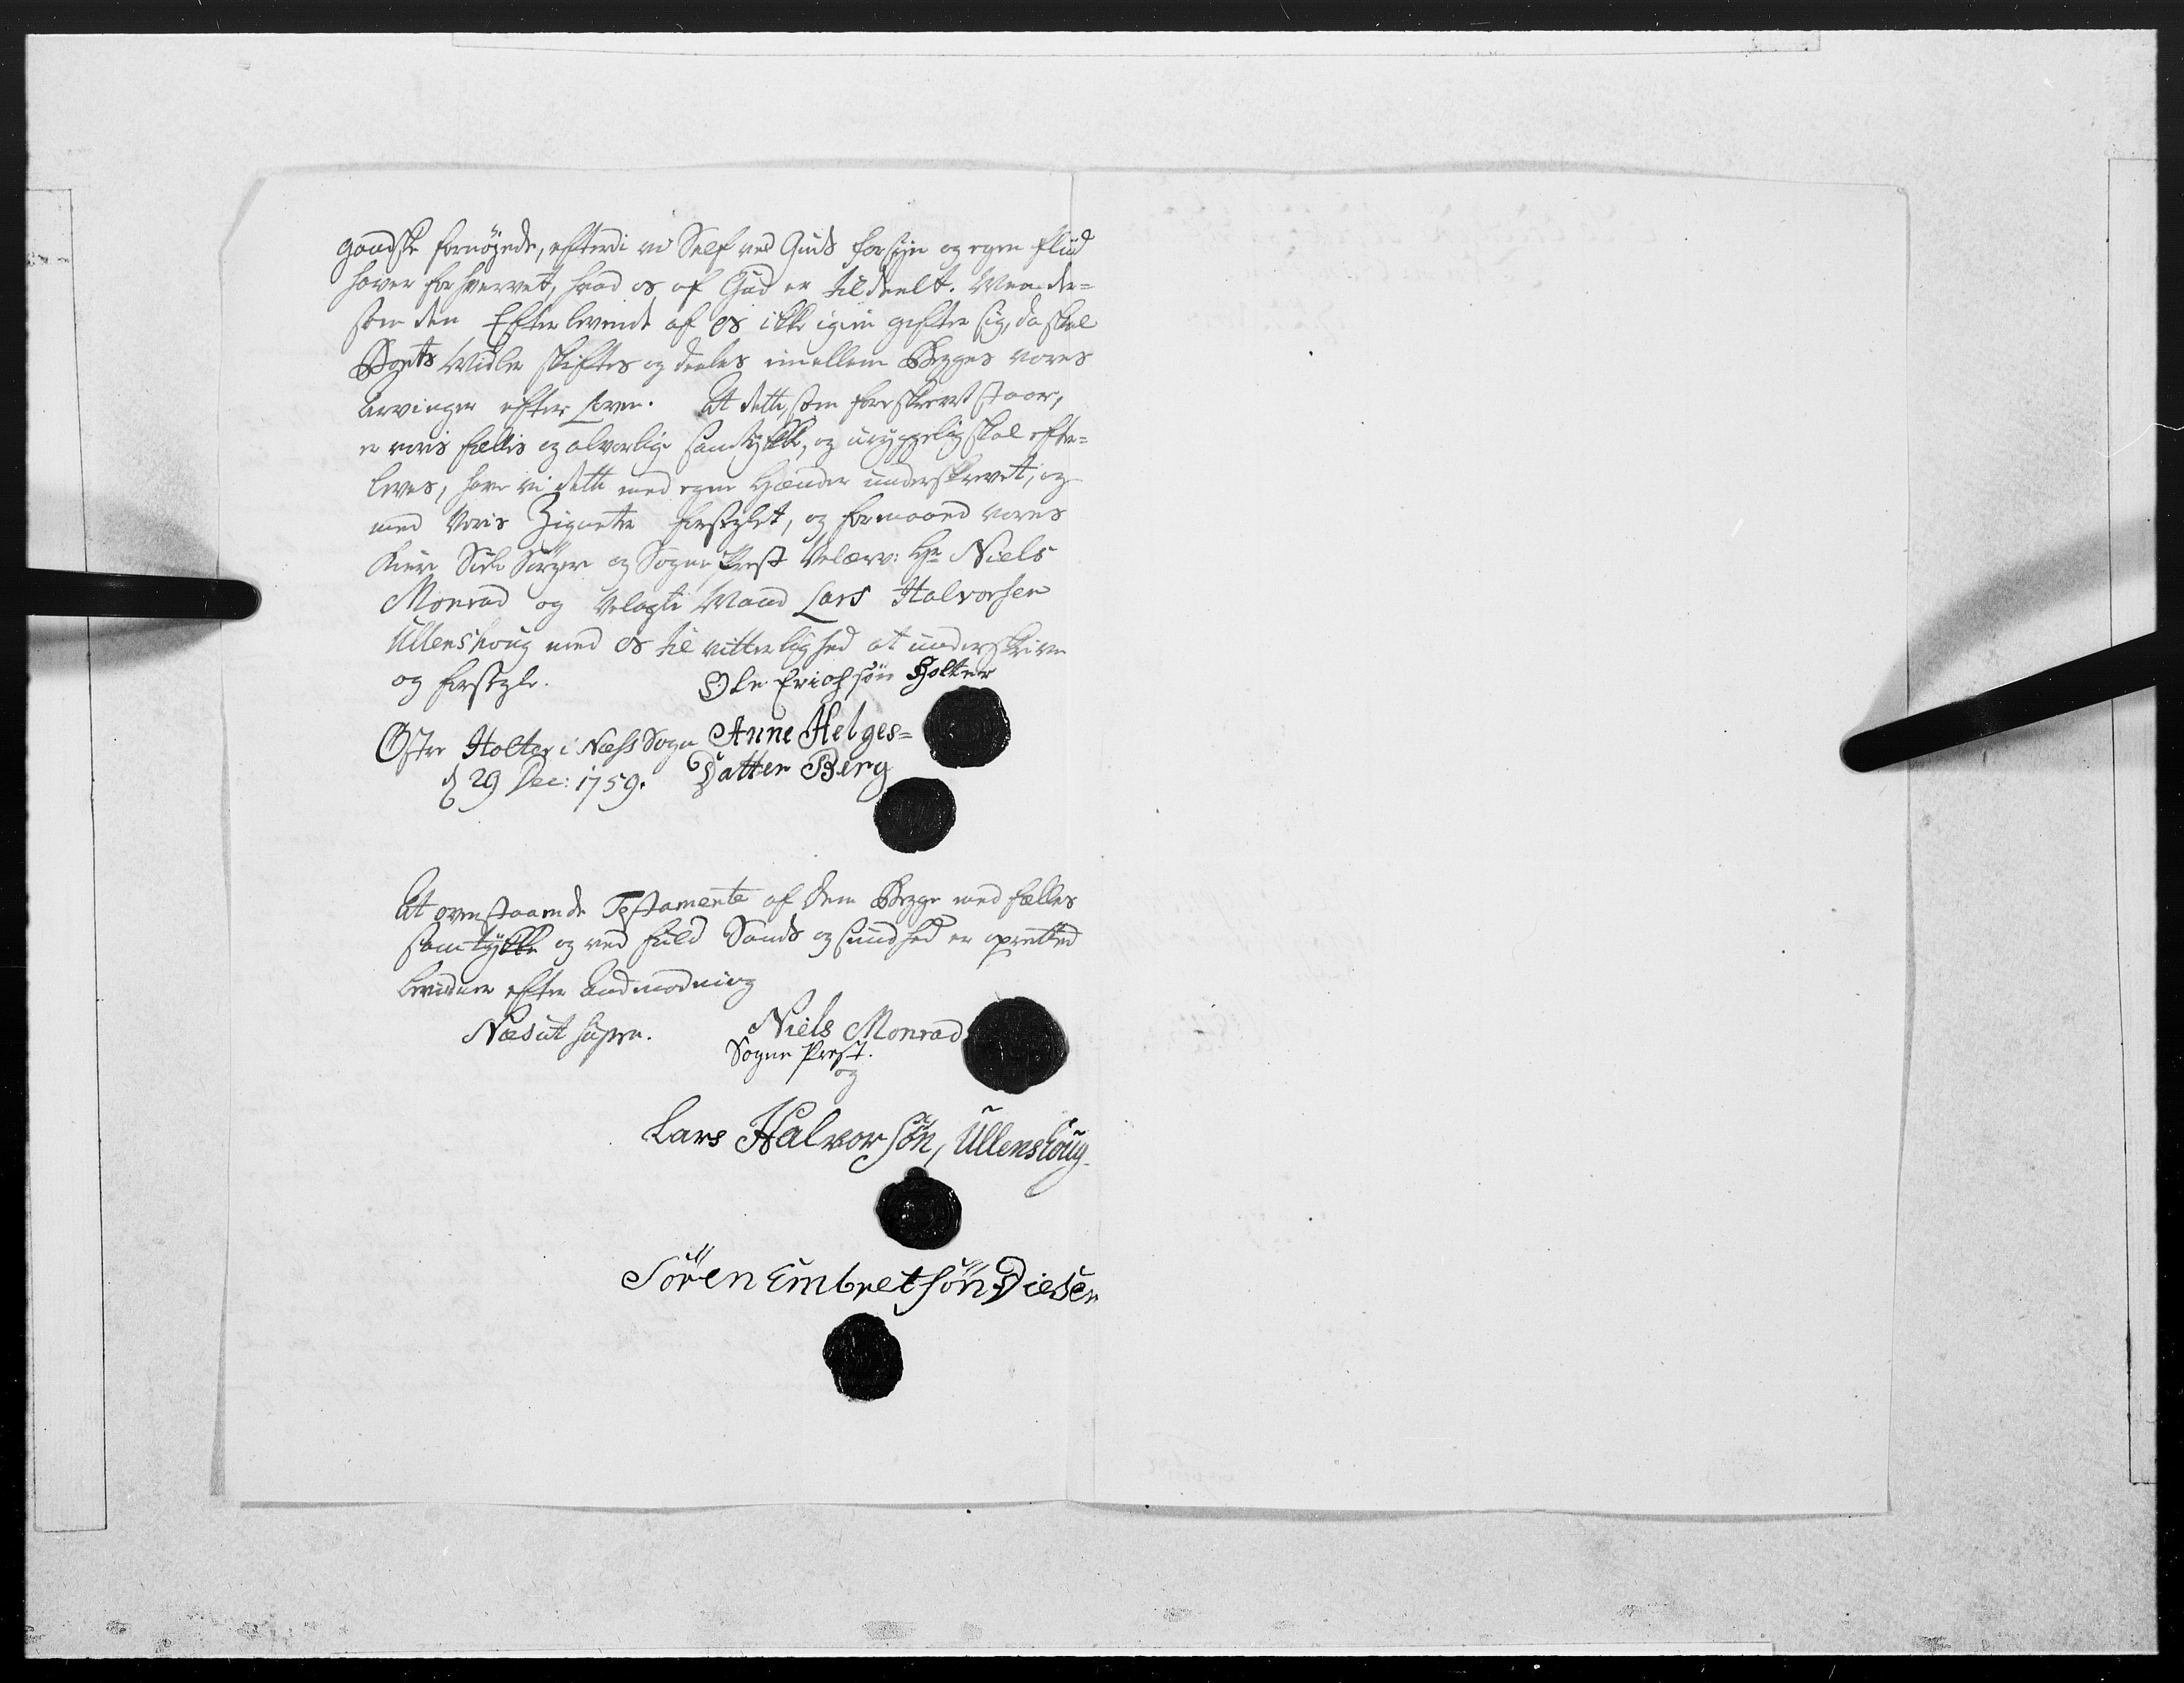 gandske fornøyede, efterdi vi Self ved Guds Forsyn og egen fliid
haver forhvervet, hvad os af Gud er tildeelt. Men der=
som den Efterlevende af os ikke igien gifter sig, da skal
Boets Midler skiftes og deeles imellem Begges vores
Arvinger efter Loven. At dette, som foreskrevet staar,
er voris fællis og alvorlige samtykke, og uryggelig skal efter=
leves, have vi dette med egne Hænder underskrevet, og
med Voris Zigneter forseglet, og formaaed vores
Kiere Siele Sørger og Sogne Prest Velærv: Hr Niels
Monrad og Velagte Mand Lars Halvorsen
Ullenshoug med os til vitterlighed at underskrive
og forsegle.
Ole Erichsøn Holter
Østre Holter i Næss Sogn Anne Helges=
d 29 Dec: 1759. Datter Berg
At ovenstaaende Testamente af dem Begge med fælles
samtykke og ved fuld Sands og sundhed er opretted
bevidner efter Anmodning
Næs ut supra. Niels Monrad
Sogne Prest.
og
Lars Halvorsøn, Ullenshoug
Søren Embretsøn Diesen